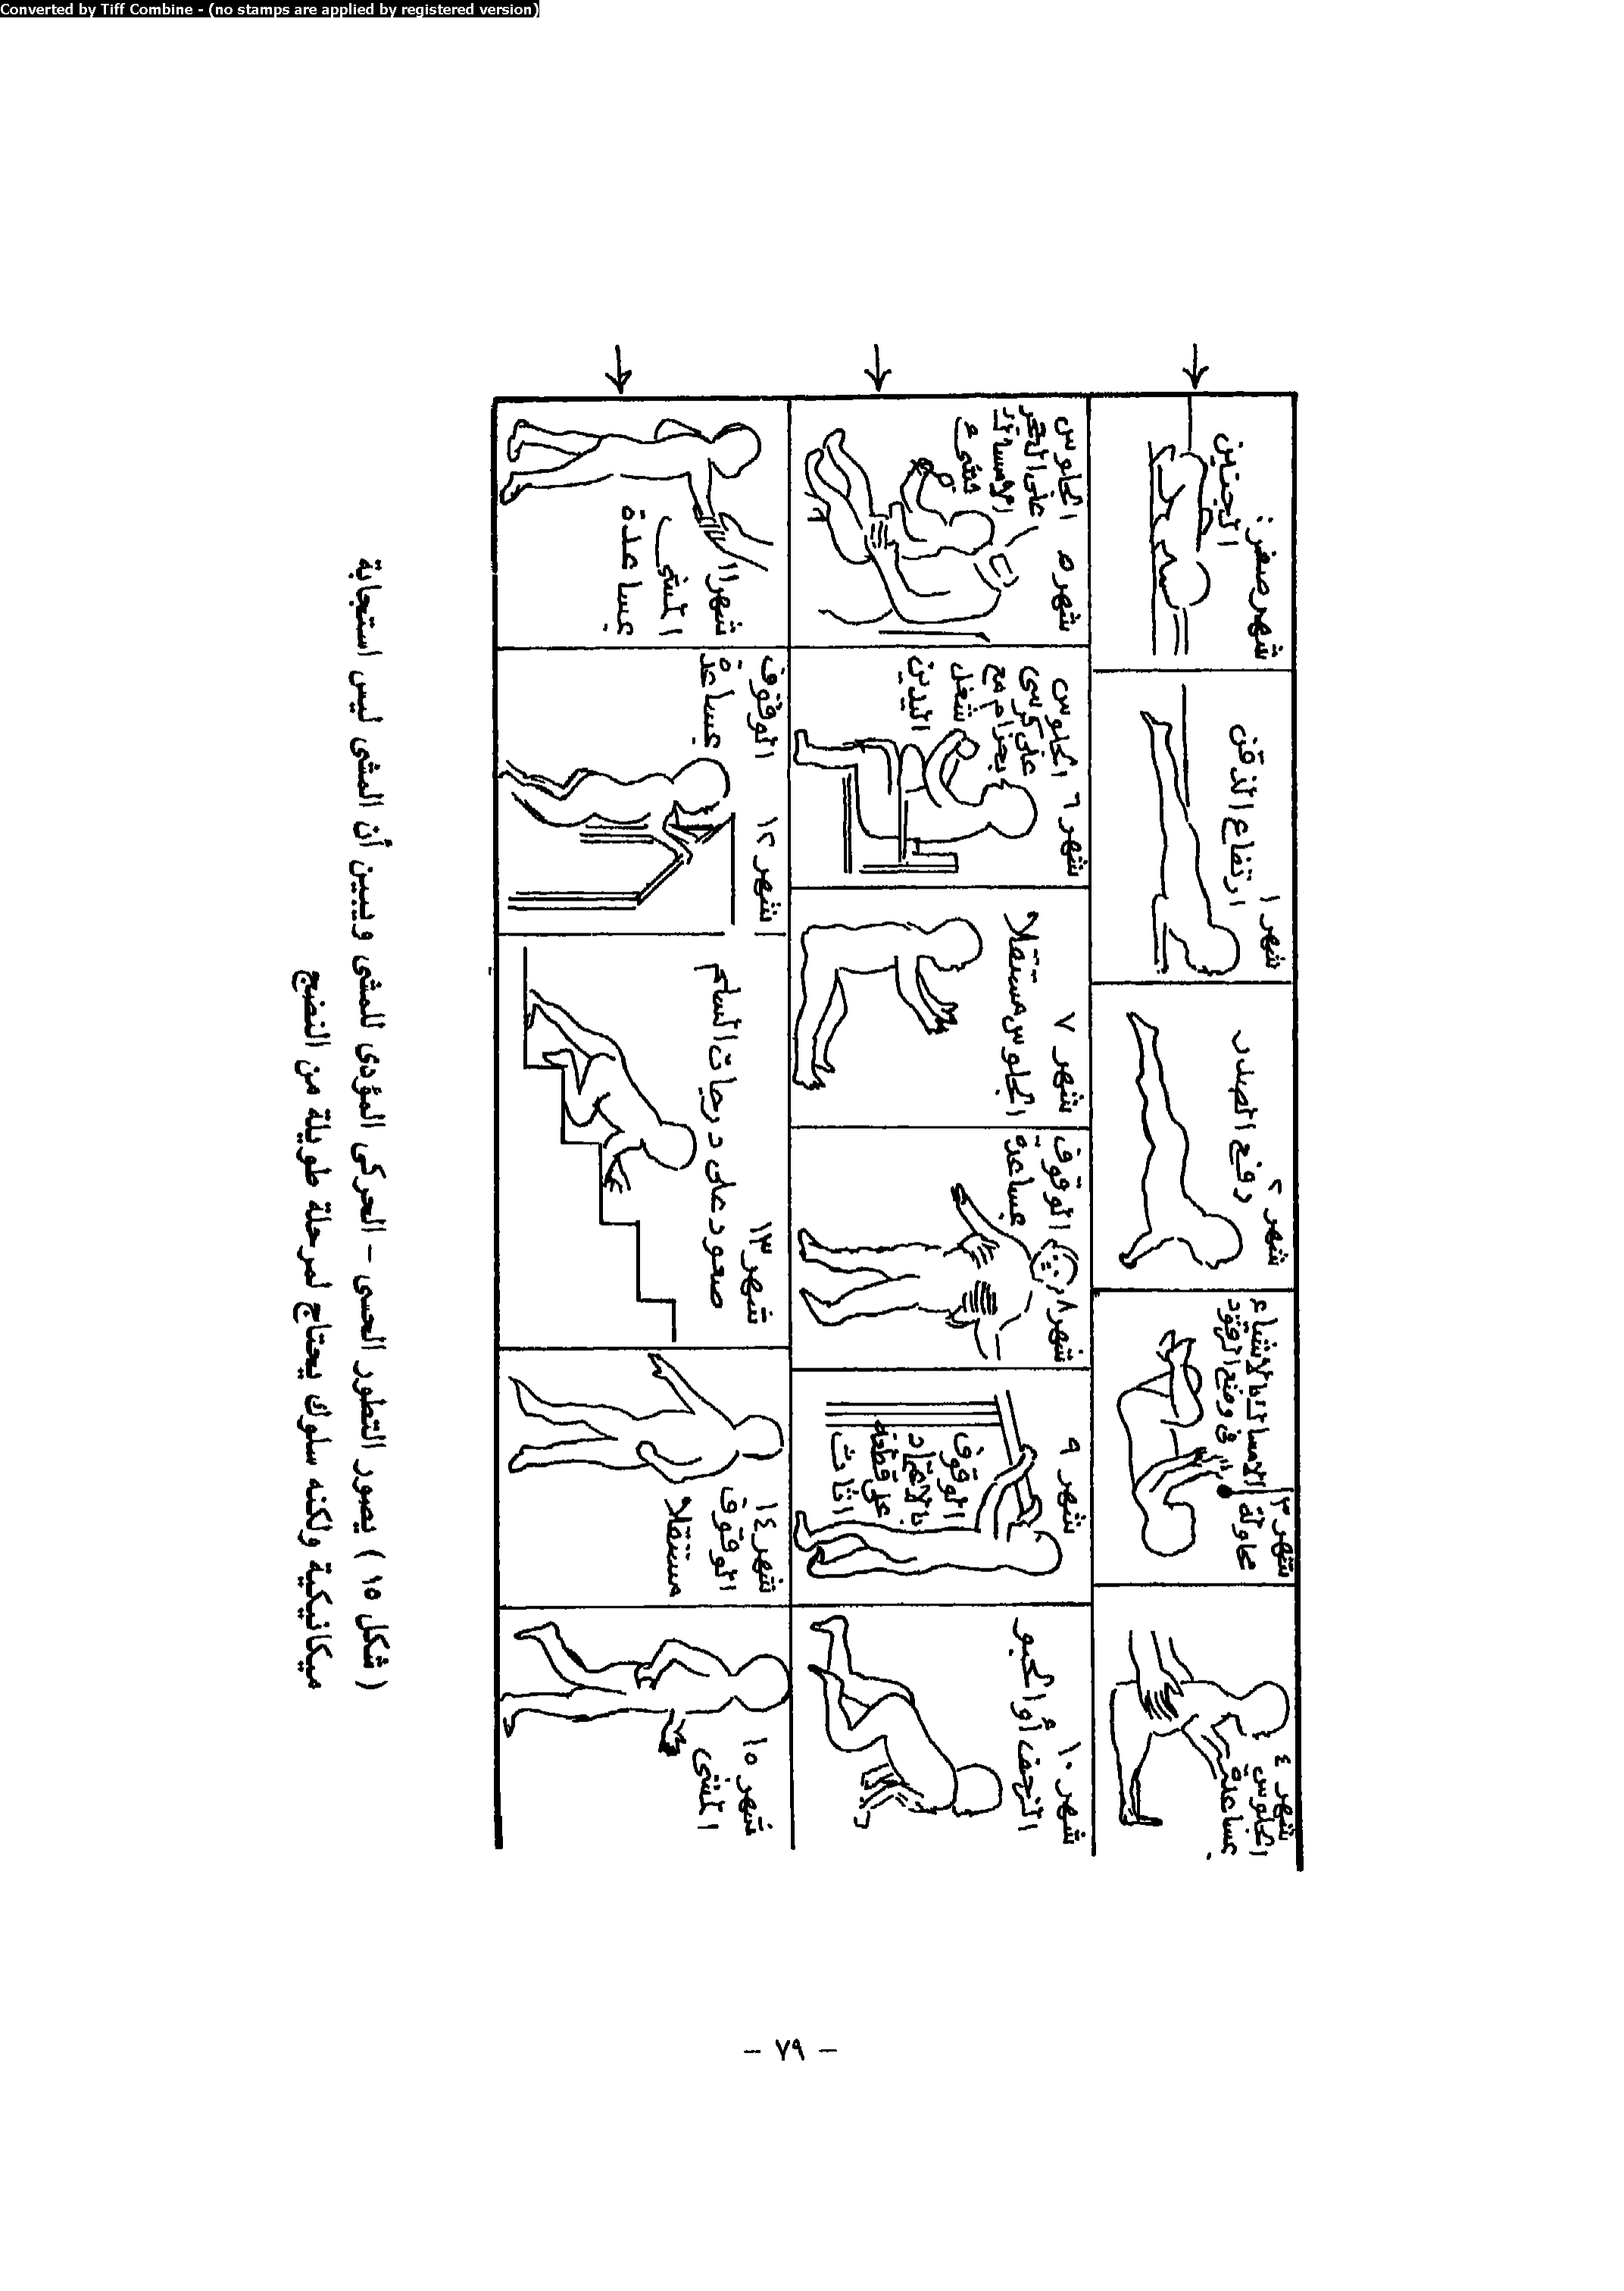 Converted by Tiff Combine - (no stamps are applied by registered version)
شهر صفر:
الجنين
شهر ١
ارتفاع الذقن
شهر ٢
رفع الصدر
شهر ٣
محاولة الامساك بالاشياء
فى وضع الرقود
شهر ٤
الجلوس
بمساعدة
شهر ٥ الجلوس
على الحجر
الامساك
شىء
شهر ٦ الجلوس
على كرسى
بحزام مع
شغل
اليدين
شهر ٧
الجلوس مستقلا
شهر ٨ الوقوف
بمساعدة
شهر ٩
الوقوف
بالاعتماد
على قطعة
اثاث
شهر ١٠
الزحف أو الحبو
شهر ١١
المشى
بمساعدة
شهر ١٢ الوقوف
بمساعدة
شهر ١٣
صعود على درجات السلم
شهر ١٤
الوقوف
مستقلا
شهر ١٥
المشى
( شكل ١٥ ) يصور التطور الحسى - الحركى المؤدى للمشى ويبين أن المشى ليس استجابة
ميكانيكية ولكنه سلوك يحتاج لمرحلة طويلة من النضج
- ٧٩ -